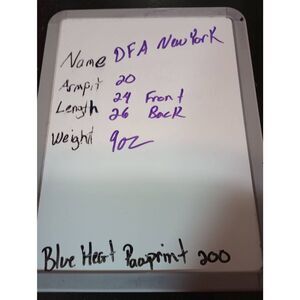 Name DFA New York
Armpit 20
Length 24 Front
26 Back
Weight 9oz
Blue Heart Pawprint 200